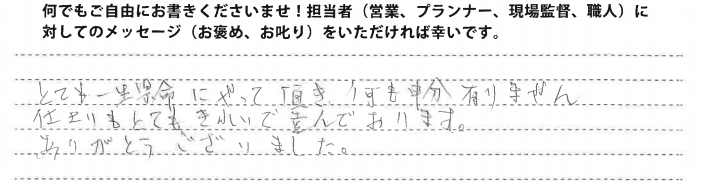 何でもご自由にお書きくださいませ！担当者（営業、プランナー、現場監督、職人）に
対してのメッセージ（お褒め、お叱り）をいただければ幸いです。
とても一生県命にやって頂き、何も申分有りません
仕上りもとてもきれいで喜んでおります。
ありがとうございました。